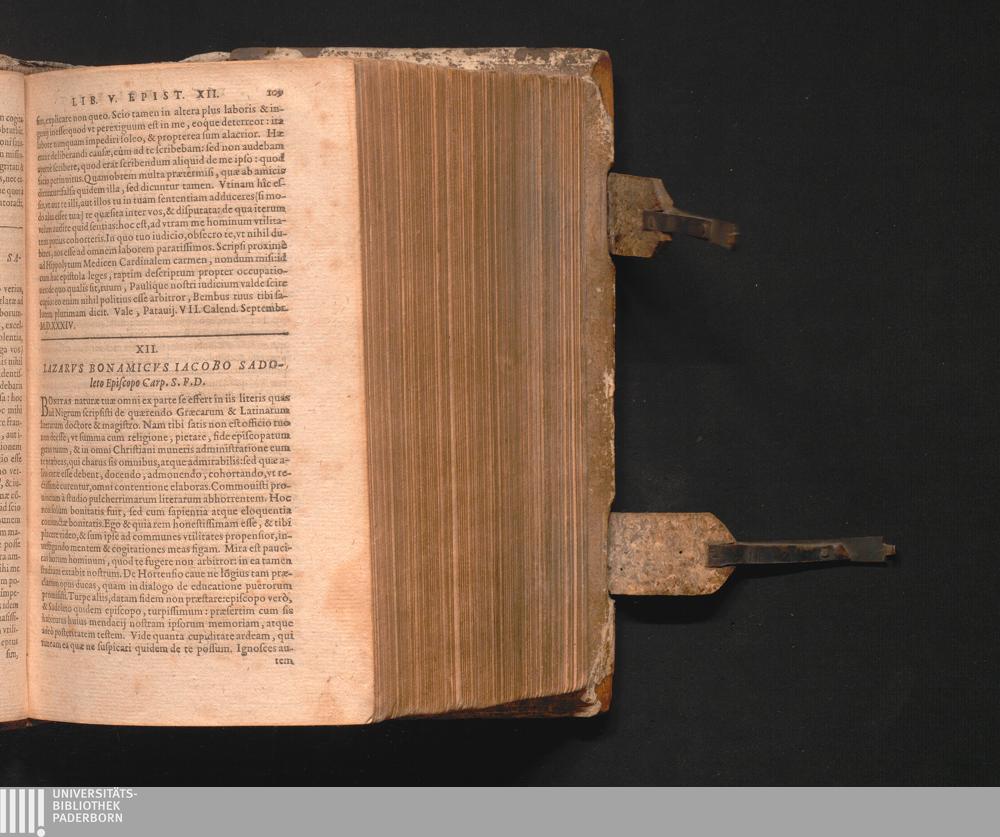 n cogn
LIB. V. EPIST. XII. 109
sim, explicare non queo. Scio tamen in altera plus laboris & in-
genij inesse: quod vt perexiguum est in me, eoque deterreor: ita
labore numquam impediri soleo, & propterea sum alacrior. Hæ
erant deliberandi causæ, cùm ad te scribebam: sed non audebam
apertè scribere, quod erat scribendum aliquid de me ipso: quod
facio perinuitus. Quamobrem multa prætermisi, quæ ab amicis
dicuntur: falsa quidem illa, sed dicuntur tamen. Vtinam hîc es-
ses, vt aut te illi, aut illos tu in tuam sententiam adduceres (si mo-
do alia esset tua) te quæsita inter vos, & disputata: de qua iterum
velim audire quid sentias: hoc est, ad vtram me hominum vtilita-
tem potius cohorteris. In quo tuo iudicio, obsecro te, vt nihil du-
bites, nos esse ad omnem laborem paratissimos. Scripsi proximè
ad Hippolytum Medicen Cardinalem carmen, nondum misi: id
cum hac epistola leges, raptim descriptum propter occupatio-
nes: de quo qualis sit, tuum, Paulique nostri iudicium valde scire
cupio: eo enim nihil politius esse arbitror, Bembus tuus tibi sa-
lutem plurimam dicit. Vale, Patauij. VII. Calend. Septembr.
M.D.XXXIV.
XII.
LAZARVS BONAMICVS IACOBO SADO-
leto Episcopo Carp. S. P. D.
BONITAS naturæ tuæ omni ex parte se effert in iis literis quas
ad Nigrum scripsisti de quærendo Græcarum & Latinarum
literarum doctore & magistro. Nam tibi satis non est officio tuo
non deesse, vt summa cum religione, pietate, fide episcopatum
geras tuum, & in omni Christiani muneris administratione eum
te præbeas, qui charus sis omnibus, atque admirabilis: sed quæ a-
liis curæ esse debent, docendo, admouendo, cohortando, vt re-
ctissimè curentur, omni contentione elaboras. Commouisti pro-
uinciam à studio pulcherrimarum literarum abhorrentem. Hoc
non solùm bonitatis fuit, sed cum sapientia atque eloquentia
coniunctæ bonitatis. Ego & quia rem honestissimam esse, & tibi
placere video, & sum ipse ad communes vtilitates propensior, in-
uestigando mentem & cogitationes meas figam. Mira est pauci-
tas horum hominum, quod te fugere non arbitror: in ea tamen
studium extabit nostrum. De Hortensio caue ne lõgius tam præ-
clarum opus ducas, quam in dialogo de educatione puerorum
promisisti. Turpe aliis, datam fidem non præstare: episcopo verò,
& Sadoleto quidem episcopo, turpissimum: præsertim cum sis
habiturus huius mendacij nostram ipsorum memoriam, atque
adeò posteritatem testem. Vide quanta cupiditate ardeam, qui
timeam ea quæ ne suspicari quidem de te possum. Ignosces au-
tem
UNIVERSITÄTS-
BIBLIOTHEK
PADERBORN